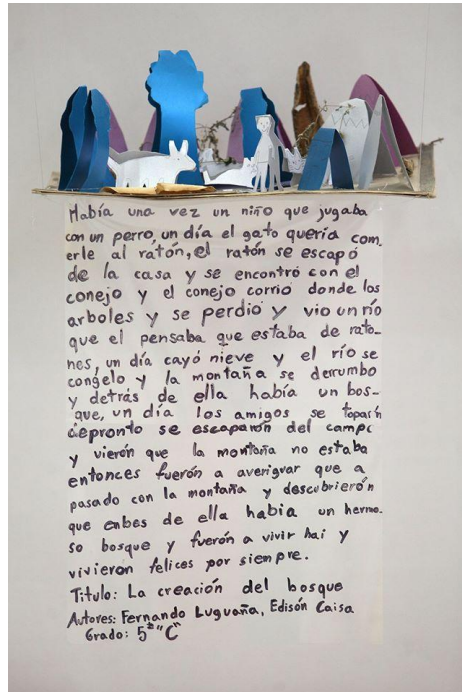 Había una vez un niño que jugaba
con un perro, un día el gato quería com
erle al ratón, el ratón se escapó
de la casa y se encontró con el
conejo y el conejo corrió donde los
arboles y se perdió y vio un río
que el pensaba que estaba de rato-
nes, un día cayó nieve y el río se
congelo y la montaña se derrumbo
y detrás de ella había un bos-
que, un día los amigos se toparón
depronto se escaparón del campo
y vierón que la montaña no estaba
entonces fuerón a averiguar que a
pasado con la montaña y descubrierón
que enbes de ella habia un hermo-
so bosque y fuerón a vivir hai y
vivieron felices por siempre.
Titulo: La creación del bosque
Autores: Fernando Luguaña, Edisón Caisa
Grado: 5to "C"